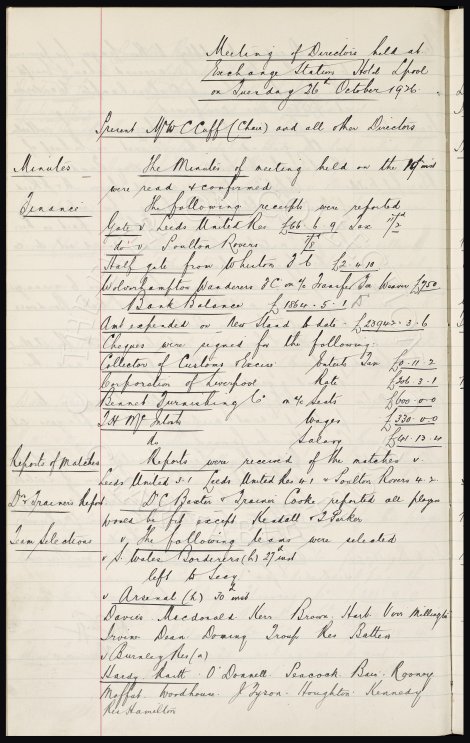 Meeting of Directors held at
Exchange Station Hotel Lpool
on Tuesday 26th October 1926.
Present Mr W C Cuff (Chair) and all other Directors
Minutes The Minutes of meeting held on the 19th inst
were read & confirmed
Finance The following receipts were reported
Gate v Leeds United Res £66. 6. 9 Tax
do v Poulton Rovers
Half gate from Whiston F C £2. 4. 10
Wolverhampton Wanderers F C on a/c Transfer Fee Weaver £750
Bank Balance £1864. 5. 1
Amt expended on New Stand to date £23942. 3. 6
Cheques were signed for the following:
Collector of Customs & Excise Entertn Tax £0. 11. 2
Corporation of Liverpool Rate £306. 3. 1
Bennet Furnishing Co on a/c Seats £600. 0. 0
T H McIntosh Wages £330. 0. 0
Do Salary £41. 13. 4
Reports of Matches Reports were received of the matches v.
Leeds United 3-1 Leeds United Res 4-1 & Poulton Rovers 4-2.
Dr & Trainers Report. Dr C Baxter & Trainer Cooke reported all players
would be fit except Kendall & T Parker
Team Selections The following teams were selected
v S. Wales Borderers (h) 27th inst
left to Secy
v Arsenal (h) 30th inst
Davies Macdonald Kerr Brown Hart Virr Millington
Irvine Dean Dominy Troup Res Batten
v Burnley Res (a)
Hardy Raitt O'Donnell Peacock Bain Rooney
Moffat Woodhouse J Tyson Houghton Kennedy
Res Hamilton